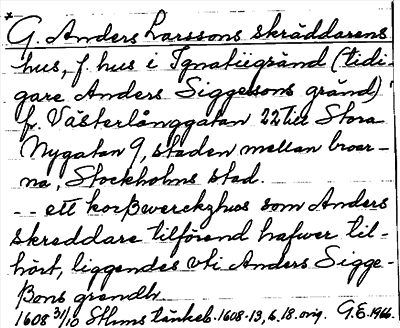 *
G. Anders Larssons skräddarens
hus, f. hus i Ignatiigränd (tidi-
gare Anders Siggesons gränd)
fr. Västerlånggatan 22 till Stora
Nygatan 9, staden mellan broar-
na, Stockholms stad.
-- ett korßwerckzhus som Anders
skreddare tilförend hafwer til-
hört, liggendes vti Anders Sigge-
ßons grendh
1608 31/10 Sthms tänkeb. 1608-13, 6.18. orig. G.E. 1966.